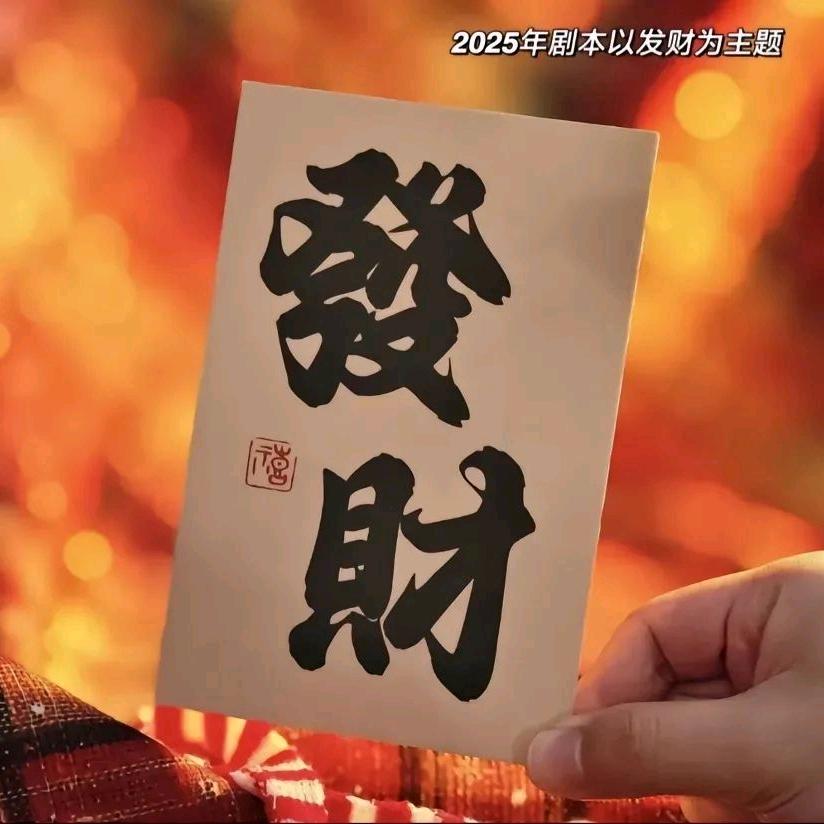 2025年剧本以发财为主题
發
財
禧